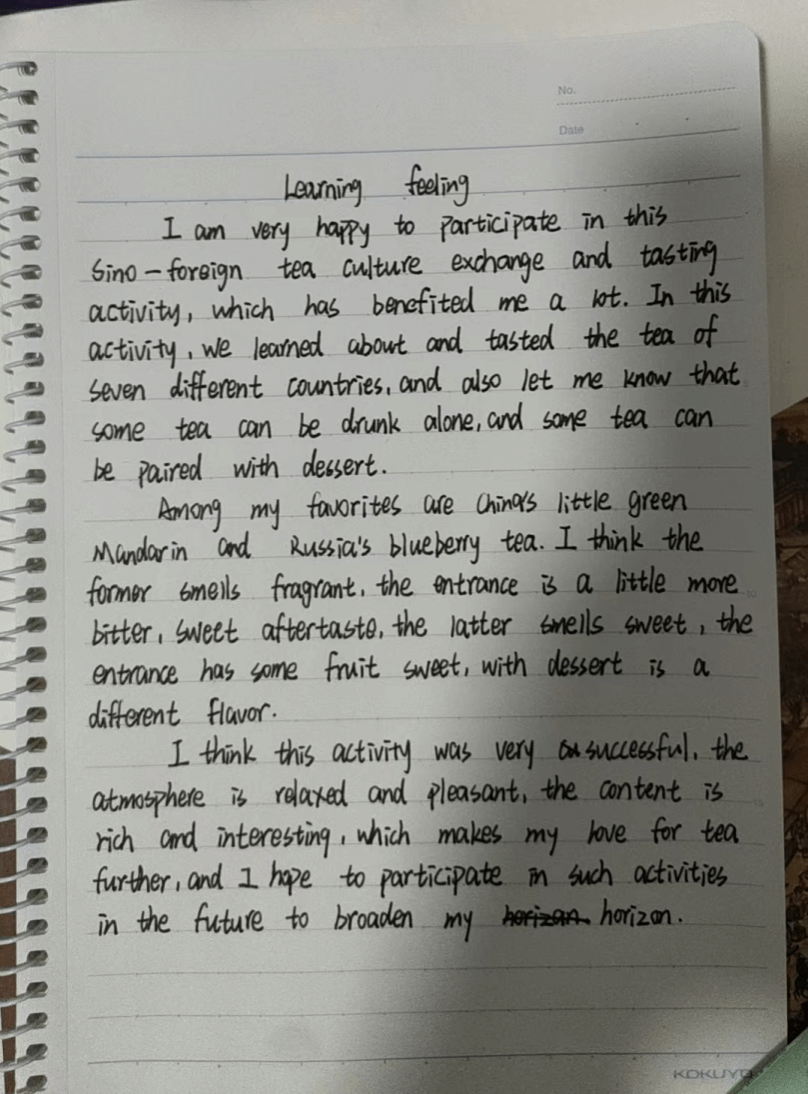 No.
Date
Learning feeling
I am very happy to participate in this
Sino-foreign tea culture exchange and tasting
activity, which has benefited me a lot. In this
activity, we learned about and tasted the tea of
seven different countries, and also let me know that
some tea can be drunk alone, and some tea can
be paired with dessert.
Among my favorites are China's little green
Mandarin and Russia's blueberry tea. I think the
former smells fragrant, the entrance is a little more
bitter, sweet aftertaste, the latter smells sweet, the
entrance has some fruit sweet, with dessert is a
different flavor.
I think this activity was very successful, the
atmosphere is relaxed and pleasant, the content is
rich and interesting, which makes my love for tea
further, and I hope to participate in such activities
in the future to broaden my horizon.
KOKUYO